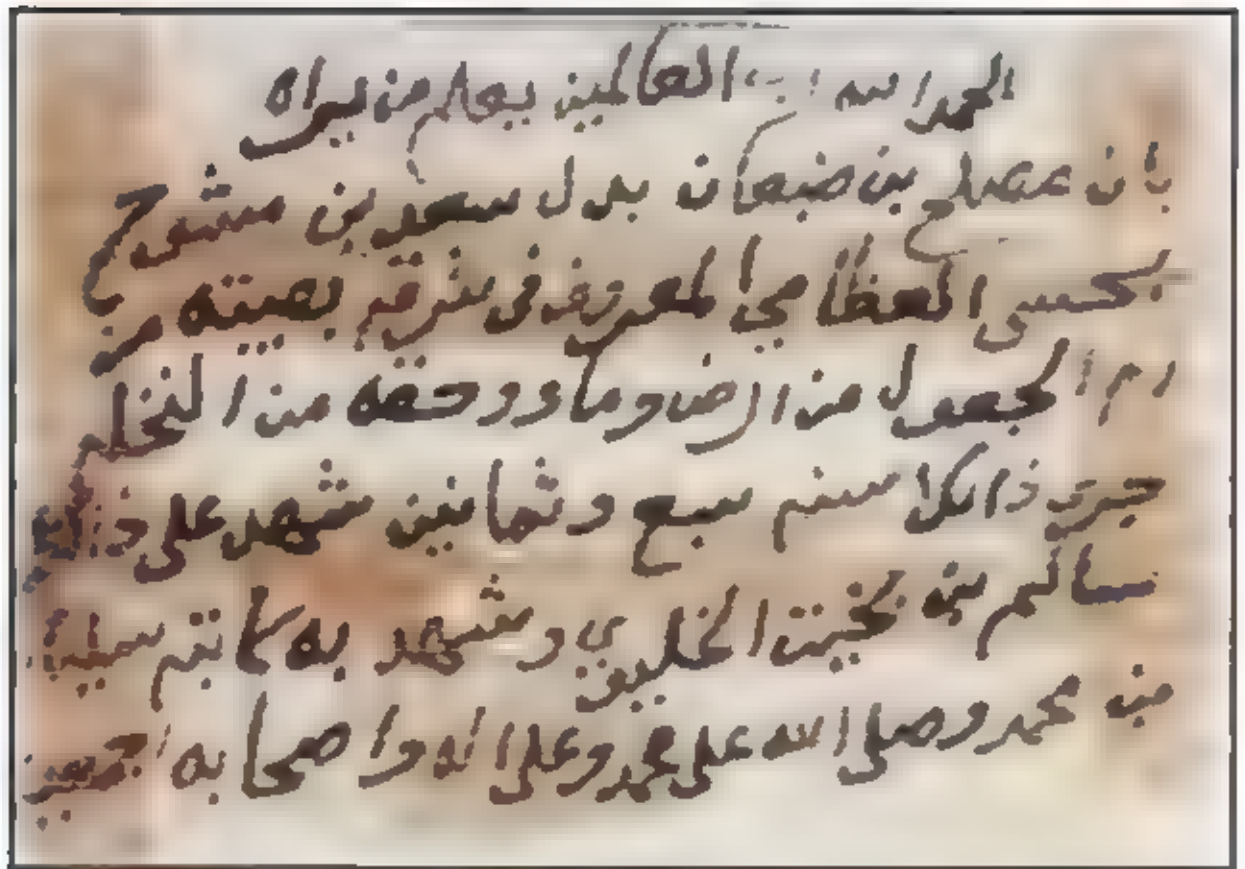 الحمد الله رب العالمين يعلم من يراه
بان عصلح بن ضبعان بدل سعد بن مشوح
بحسى العظامي المعروف في شرقيه بصيته من
ام الجعول من ارض وما ووحقه من النخله
جرى ذالك سنه سبع وثمانين شهد على ذالك
سالم بن بخيت الخليوي وشهد به كاتبه سليمان
بن محمد وصلى الله على محمد وعلى اله واصحابه اجمعين